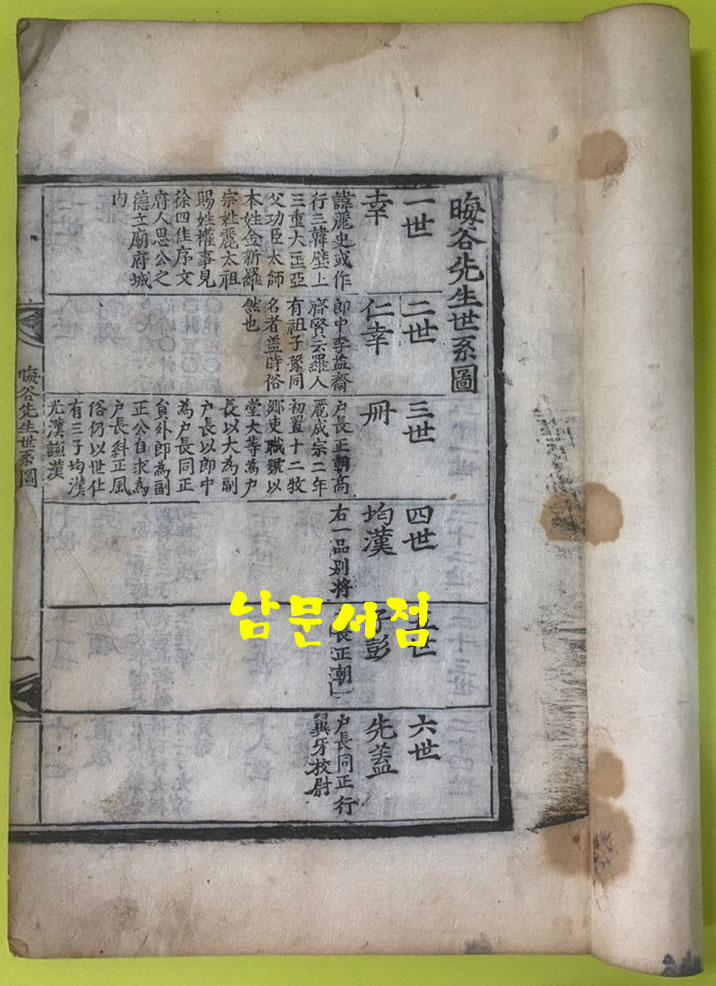 晦谷先生世系圖
一世
幸
諱麗史或作
行三韓壁上
三重大匡亞
父功臣太師
本姓金新羅
宗姓麗太祖
賜姓權事見
徐四佳序文
府人思公之
德立廟府城
内
二世
仁幸
郎中李益齋
齊賢云羅人
有祖子孫同
名者盖時俗
然也
三世
冊
户長正朝高
麗成宗二年
初置十二牧
鄉吏職號以
堂大等為户
長以大為副
户長以郎中
為户長同正
貟外郎為副
正公自求為
户長斜正風
俗仍以世仕
有三子均漢
光漢謙漢
四世
均漢
右一品別將
世
子彭
長正朝
六世
先蓋
户長同正行
翼牙校尉
晦谷先生世系圖
一
남문서점